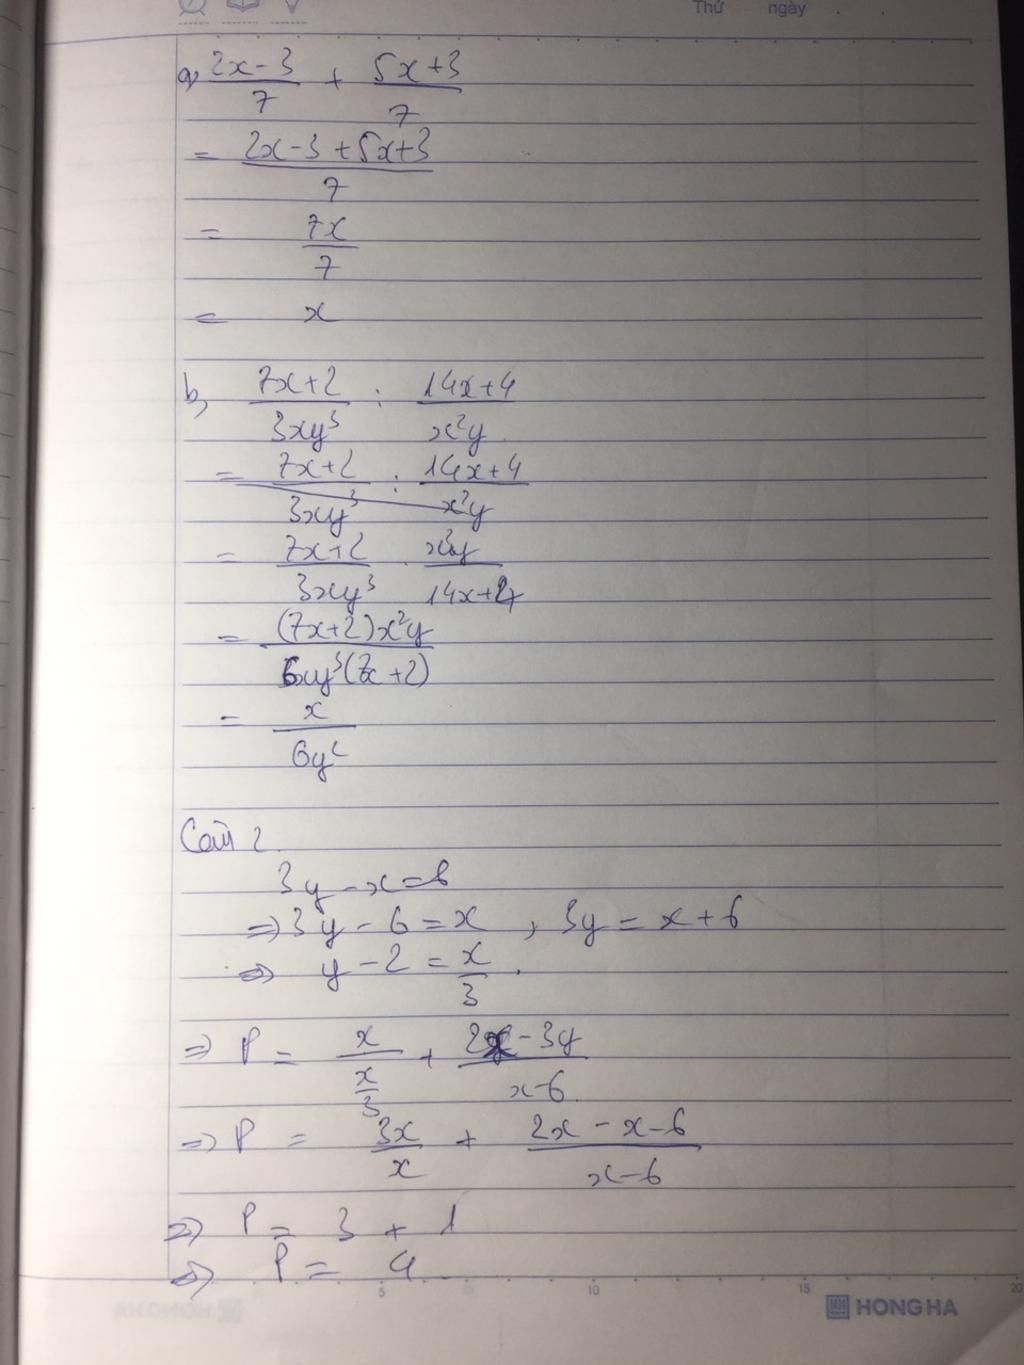 Thứ ngày
a, \frac{2x-3}{7} + \frac{5x+3}{7}
= \frac{2x-3+5x+3}{7}
= \frac{7x}{7}
= x
b, \frac{7x+2}{3xy^3} : \frac{14x+4}{x^2y}
= \frac{7x+2}{3xy^3} : \frac{14x+4}{x^2y}
= \frac{7x+2}{3xy^3} . \frac{x^2y}{14x+4}
= \frac{(7x+2)x^2y}{6xy^3(7x+2)}
= \frac{x}{6y^2}
Câu 2.
3y - x = 6
=> 3y - 6 = x , 3y = x + 6
=> y - 2 = \frac{x}{3} .
=> P = \frac{x}{\frac{x}{3}} + \frac{2x-3y}{x-6}
=> P = \frac{3x}{x} + \frac{2x-x-6}{x-6}
=> P = 3 + 1
=> P = 4
5 10 15 20
HONG HA